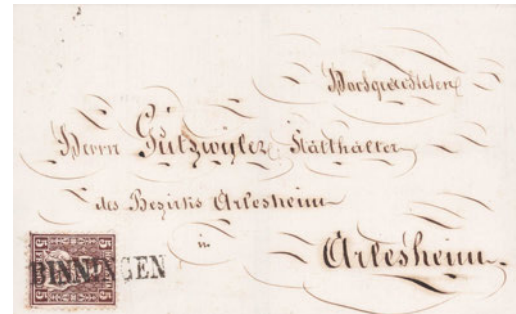 Hochgeachteten
Herrn Gutzwyler Statthalter
des Bezirks Arlesheim
in
Arlesheim.
5 5
BINNINGEN
5 5